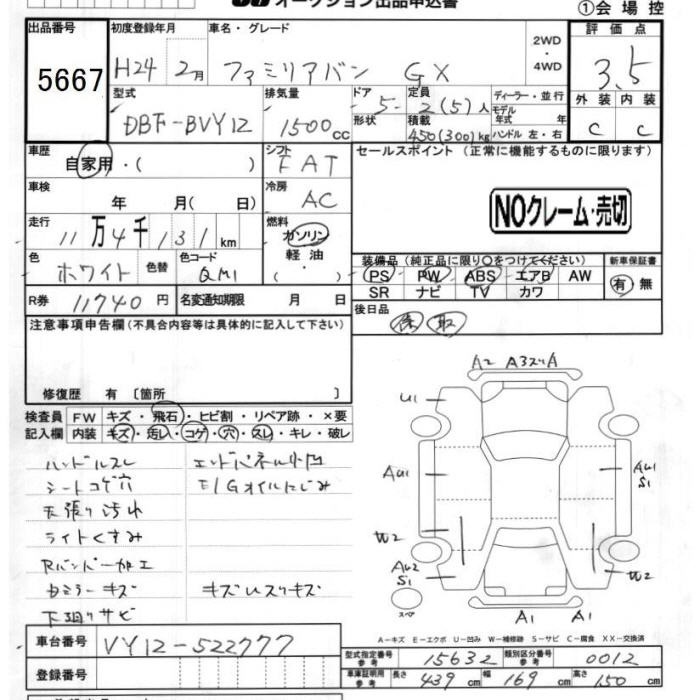 オークション出品申込書
①会場控
出品番号
5667
初度登録年月
H24 2月
車名・グレード
ファミリアバン GX
2WD
・
4WD
評価点
3.5
型式
DBF-BVY12
排気量
1500cc
ドア
5
形状
定員
2(5)人
積載
450(300)kg
ディーラー・並行
モデル年式 年
ハンドル 左・右
外装 内装
C C
車歴
自家用・( )
シフト
FAT
セールスポイント (正常に機能するものに限ります)
車検
年 月( 日)
冷房
AC
NOクレーム・売切
走行
11万4千131km
燃料
ガソリン
軽油
・
( )
色
ホワイト
色替
色コード
QM1
装備品(純正品に限り〇をつけてください)
新車保証書
PS PW ABS エアB AW
SR ナビ TV カワ
有・無
R券 11740円
名変通知期限 月 日
後日品
保 取
注意事項申告欄(不具合内容等は具体的に記入して下さい)
修復歴 有〔箇所 〕
検査員
記入欄
FW キズ・飛石・ヒビ割・リペア跡・×要
内装 キズ・汚レ・コゲ・穴・スレ・キレ・破レ
ハンドルスレ
エンドパネル小凹
シートコゲ穴
E/Gオイルにじみ
天張り汚れ
ライトくすみ
Rバンパー加工
Dミラーキズ
キズUスリキズ
下廻りサビ
A2 A3スリA
U1
AU1
AU1
S1
W2
AU2
S1
W2
スペア
A1 A1
A-キズ E-エクボ U-凹み W-補修跡 S-サビ C-腐食 XX-交換済
車台番号
VY12-522777
登録番号
型式指定番号
参考
15632
類別区分番号
参考
0012
車庫証明用
参考
長さ 439cm 幅 169cm 高さ 150cm